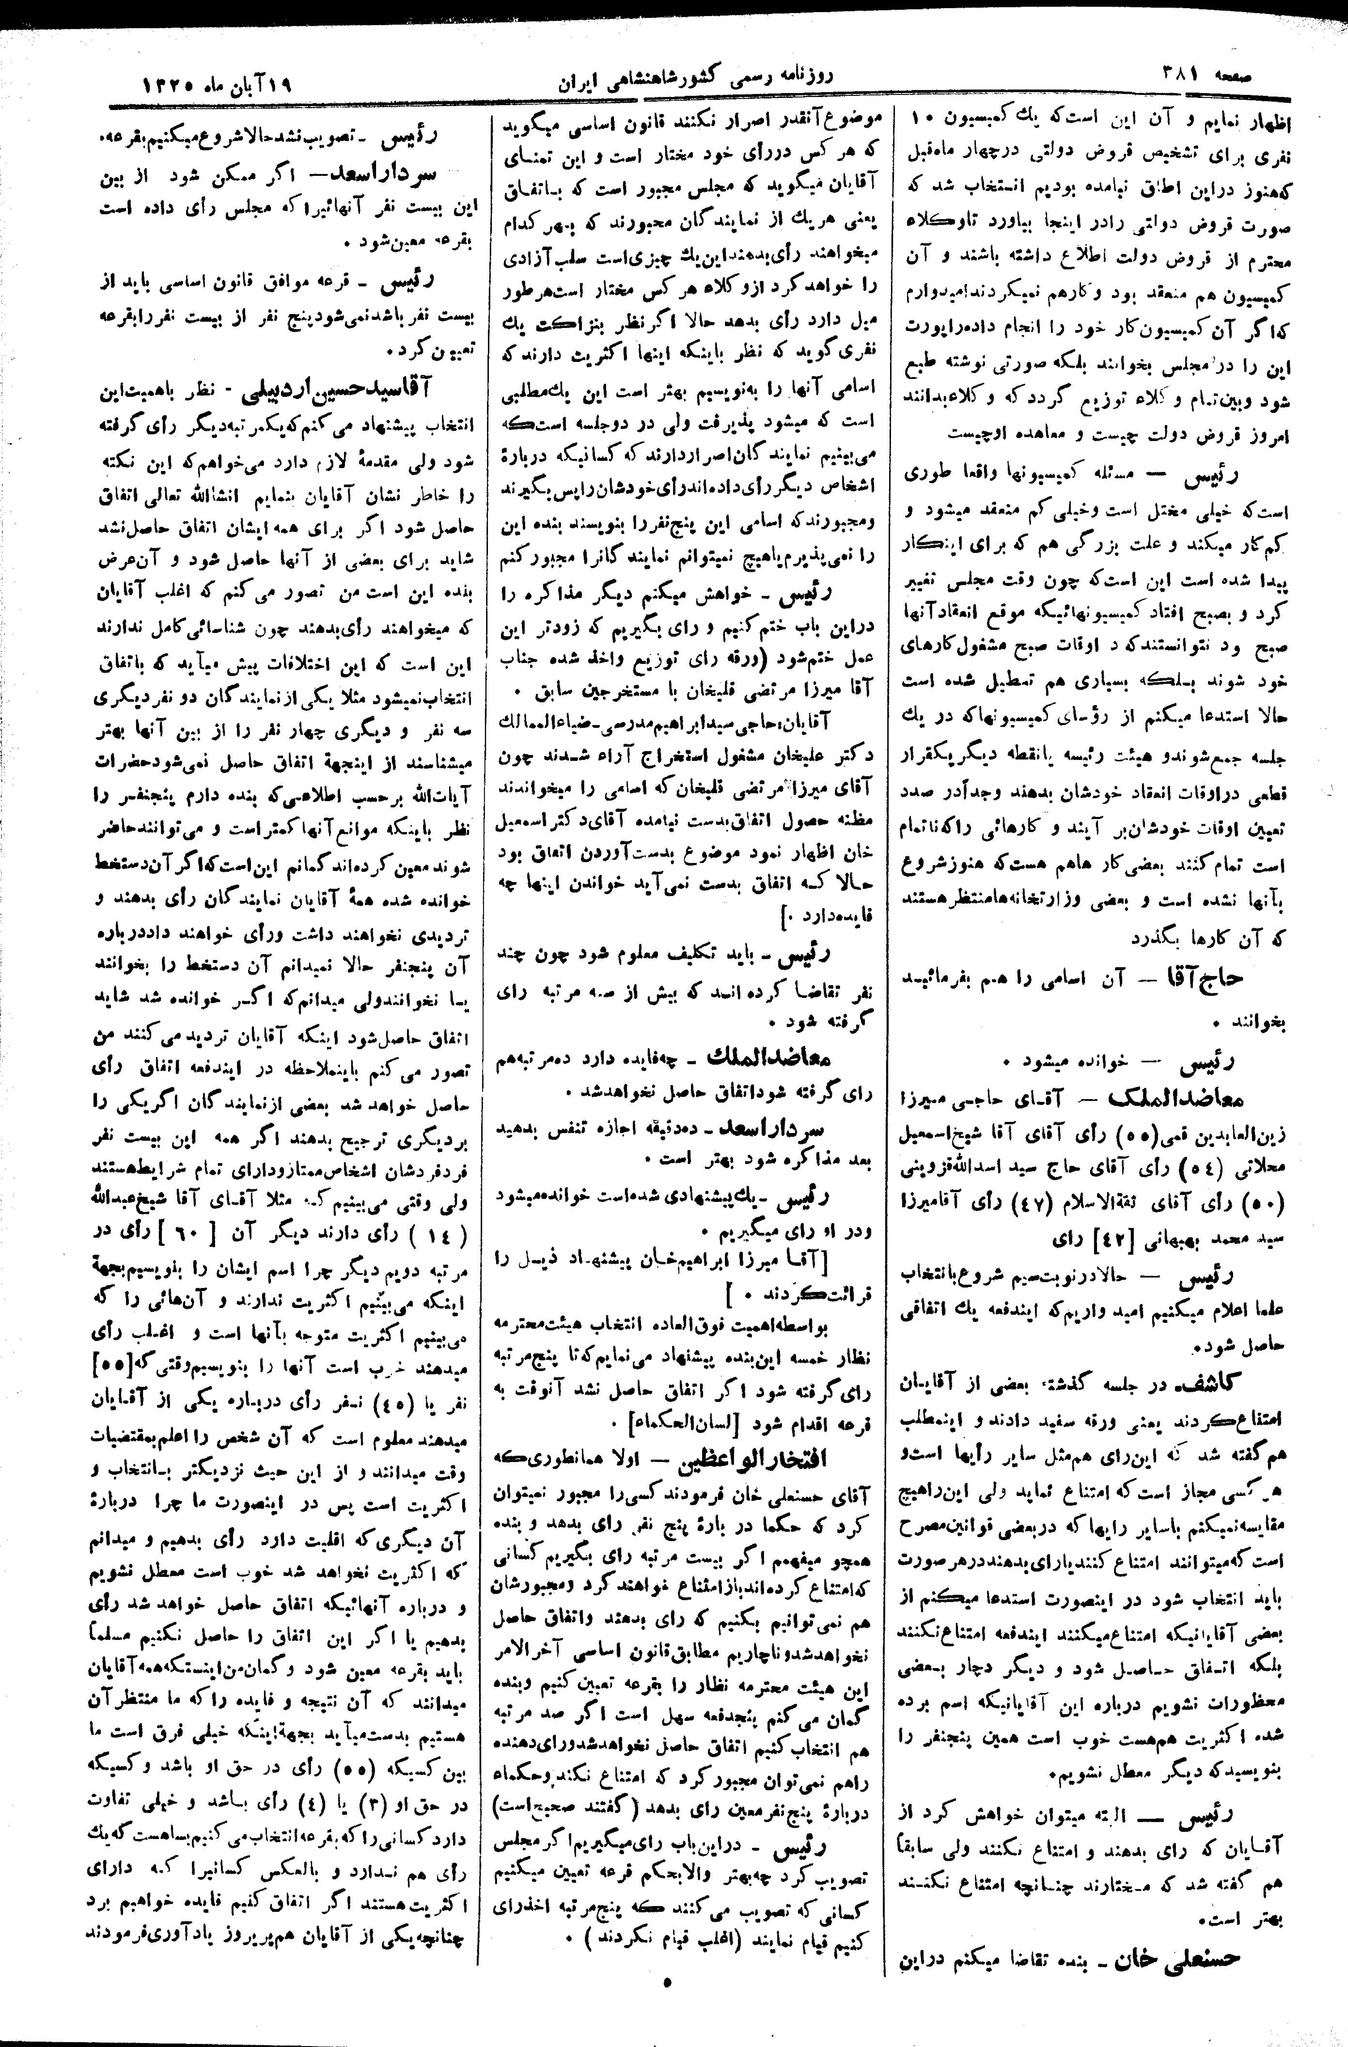 صفحه ۳۸۱
روزنامه رسمی کشور شاهنشاهی ایران
۱۹ آبان ماه ۱۳۲۵
اظهار نمایم و آن این است که یك کمیسیون ۱۰
نفری برای تشخیص قروض دولتی در چهار ماه قبل
که هنوز در این اطاق نیامده بودیم انتخاب شد که
صورت قروض دولتی را در اینجا بیاورد تا وکلاء
محترم از قروض دولت اطلاع داشته باشند و آن
کمیسیون هم منعقد بود و کار هم نمیکردند امیدوارم
که اگر آن کمیسیون کار خود را انجام داده راپورت
این را در مجلس بخوانند بلکه صورتی نوشته طبع
شود و بین تمام وکلاء توزیع گردد که وکلاء بدانند
امروز قروض دولت چیست و معاهده او چیست
رئیس — مسئله کمیسیونها واقعا طوری
است که خیلی مختل است و خیلی کم منعقد میشود و
کم کار میکند و علت بزرگی هم که برای اینکار
پیدا شده است این است که چون وقت مجلس تغییر
کرد و بصبح افتاد کمیسیونهائیکه موقع انعقاد آنها
صبح ود نتوانستند که د اوقات صبح مشغول کارهای
خود شوند بلکه بسیاری هم تعطیل شده است
حالا استدعا میکنم از رؤسای کمیسیونها که در یك
جلسه جمع شوند و هیئت رئیسه یا نقطه دیگر یکقرار
قطعی در اوقات انعقاد خودشان بدهند و جداً در صدد
تعیین اوقات خودشان بر آیند و کارهائی را که ناتمام
است تمام کنند بعضی کار هاهم هست که هنوز شروع
بآنها نشده است و بعضی وزارتخانه ها منتظر هستند
که آن کارها بگذرد
حاج آقا — آن اسامی را هم بفرمائید
بخوانند .
رئیس — خوانده میشود .
معاضد الملک — آقای حاجی میرزا
زین العابدین قمی (۵۵) رأی آقای آقا شیخ اسمعیل
محلاتی (۵٤) رأی آقای حاج سید اسدالله قزوینی
(۵۰) رأی آقای ثقة الاسلام (٤۷) رأی آقا میرزا
سید محمد بهبهانی [٤۲] رای
رئیس — حالا در نوبت سیم شروع بانتخاب
علما اعلام میکنیم امید واریم که ایندفعه یك اتفاقی
حاصل شود.
کاشف - در جلسه گذشته بعضی از آقایان
امتناع کردند یعنی ورقه سفید دادند و اینمطلب
هم گفته شد که این رای هم مثل سایر رأیها است و
هر کسی مجاز است که امتناع نماید ولی این را هیچ
مقایسه نمیکنم با سایر رایها که در بعضی قوانین مصرح
است که میتوانند امتناع کنند یا رای بدهند در هر صورت
باید انتخاب شود در اینصورت استدعا میکنم از
بعضی آقایانیکه امتناع میکنند ایندفعه امتناع نکنند
بلکه اتفاق حاصل شود و دیگر دچار بعضی
محظورات نشویم درباره این آقایانیکه اسم برده
شده اکثریت هم هست خوب است همین پنجنفر را
بنویسید که دیگر معطل نشویم.
رئیس — البته میتوان خواهش کرد از
آقایان که رای بدهند و امتناع نکنند ولی سابقاً
هم گفته شد که مختارند چنانچه امتناع نکنند
بهتر است.
حسنعلی خان - بنده تقاضا میکنم در این
موضوع آنقدر اصرار نکنند قانون اساسی میگوید
که هر کس در رأی خود مختار است و این تمنای
آقایان میگوید که مجلس مجبور است که باتفاق
یعنی هر یك از نمایندگان مجبورند که بهر کدام
میخواهند رأی بدهند این یك چیزی است سلب آزادی
را خواهد کرد از وکلاء هر کس مختار است هر طور
میل دارد رأی بدهد حالا اگر نظر بنزاکت یك
نفری گوید که نظر باینکه اینها اکثریت دارند که
اسامی آنها را بنویسیم بهتر است این یك مطلبی
است که میشود پذیرفت ولی در دو جلسه است که
می بینیم نمایندگان اصرار دارند که کسانیکه درباره
اشخاص دیگر رأی داده اند رأی خودشان را پس بگیرند
و مجبورند که اسامی این پنج نفر را بنویسند بنده این
را نمی پذیرم یا هیچ نمیتوانم نمایندگانرا مجبور کنم
رئیس - خواهش میکنم دیگر مذاکره را
در این باب ختم کنیم و رای بگیریم که زودتر این
عمل ختم شود (ورقه رای توزیع واخذ شده جناب
آقا میرزا مرتضی قلیخان با مستخرجین سابق .
آقایان: حاجی سید ابراهیم مدرسی - ضیاء الممالك
دکتر علیخان مشغول استخراج آراء شدند چون
آقای میرزا مرتضی قلیخان که اسامی را میخواندند
مظنه حصول اتفاق بدست نیامده آقای دکتر اسمعیل
خان اظهار نمود موضوع بدست آوردن اتفاق بود
حالا که اتفاق بدست نمی آید خواندن اینها چه
فایده دارد .]
رئیس - باید تکلیف معلوم شود چون چند
نفر تقاضا کرده اند که بیش از سه مرتبه رای
گرفته شود .
معاضد الملك - چه فایده دارد ده مرتبه هم
رای گرفته شود اتفاق حاصل نخواهد شد .
سردار اسعد - ده دقیقه اجازه تنفس بدهید
بعد مذاکره شود بهتر است .
رئیس - یك پیشنهادی شده است خوانده میشود
و در او رای میگیریم .
[آقا میرزا ابراهیم خان پیشنهاد ذیل را
قرائت کردند .]
بواسطه اهمیت فوق العاده انتخاب هیئت محترمه
نظار خمسه این بنده پیشنهاد می نمایم که تا پنج مرتبه
رای گرفته شود اگر اتفاق حاصل نشد آنوقت به
قرعه اقدام شود [لسان الحکماء] .
افتخار الواعظین — اولا همانطوری که
آقای حسنعلی خان فرمودند کسی را مجبور نمیتوان
کرد که حکما در باره پنج نفر رأی بدهد و بنده
همچو میفهمم اگر بیست مرتبه رای بگیریم کسانی
که امتناع کرده اند باز امتناع خواهند کرد و مجبورشان
هم نمی توانیم بکنیم که رای بدهند و اتفاق حاصل
نخواهد شد و ناچاریم مطابق قانون اساسی آخر الامر
این هیئت محترمه نظار را بقرعه تعیین کنیم و بنده
گمان می کنم پنجدفعه سهل است اگر صد مرتبه
هم انتخاب کنیم اتفاق حاصل نخواهد شد و رای دهنده
را هم نمی توان مجبور کرد که امتناع نکند و حکماء
درباره پنج نفر معین رای بدهد (گفتند صحیح است)
رئیس - در این باب رای میگیریم اگر مجلس
تصویب کرد چه بهتر والا بحکم قرعه تعیین میکنیم
کسانی که تصویب می کنند که پنج مرتبه اخذ رای
کنیم قیام نمایند (اغلب قیام نکردند) .
رئیس - تصویب نشد حالا شروع میکنیم بقرعه.
سردار اسعد — اگر ممکن شود از بین
این بیست نفر آنهائیرا که مجلس رأی داده است
بقرعه معین شود .
رئیس - قرعه موافق قانون اساسی باید از
بیست نفر باشد نمی شود پنج نفر از بیست نفر را بقرعه
تعیین کرد.
آقا سید حسین اردبیلی - نظر باهمیت این
انتخاب پیشنهاد می کنم که یکمرتبه دیگر رأی گرفته
شود ولی مقدمة لازم دارد می خواهم که این نکته
را خاطر نشان آقایان بنمایم انشاالله تعالی اتفاق
حاصل شود اگر برای همه ایشان اتفاق حاصل نشد
شاید برای بعضی از آنها حاصل شود و آن عرض
بنده این است من تصور می کنم که اغلب آقایان
که میخواهند رأی بدهند چون شناسائی کامل ندارند
این است که این اختلافات پیش میآید که باتفاق
انتخاب نمیشود مثلا یکی از نمایندگان دو نفر دیگری
سه نفر و دیگری چهار نفر را از بین آنها بهتر
میشناسند از اینجهة اتفاق حاصل نمی شود حضرات
آیات الله بر حسب اطلاعی که بنده دارم پنجنفر را
نظر باینکه موانع آنها کمتر است و می توانند حاضر
شوند معین کرده اند گمانم این است که اگر آن دستخط
خوانده شده همۀ آقایان نمایندگان رأی بدهند و
تردیدی نخواهند داشت و رأی خواهند داد درباره
آن پنجنفر حالا نمیدانم آن دستخط را بخوانند
یا نخوانند ولی میدانم که اگر خوانده شد شاید
اتفاق حاصل شود اینکه آقایان تردید می کنند من
تصور می کنم باینملاحظه در ایندفعه اتفاق رأی
حاصل خواهد شد بعضی از نمایندگان اگر یکی را
بر دیگری ترجیح بدهند اگر همه این بیست نفر
فرد فردشان اشخاص ممتاز و دارای تمام شرایط هستند
ولی وقتی می بینیم که مثلا آقای آقا شیخ عبدالله
(۱٤) رأی دارند دیگر آن [۶۰] رأی در
مرتبه دویم دیگر چرا اسم ایشان را بنویسیم بجهة
اینکه می بینیم اکثریت ندارند و آن هائی را که
می بینیم اکثریت متوجه بآنها است و اغلب رأی
میدهند خوب است آنها را بنویسیم وقتی که [۵۵]
نفر یا (٤۵) نفر رأی درباره یکی از آقایان
میدهند معلوم است که آن شخص را اعلم بمقتضیات
وقت میدانند و از این حیث نزدیکتر بانتخاب و
اکثریت است پس در اینصورت ما چرا درباره
آن دیگری که اقلیت دارد رأی بدهیم و میدانم
که اکثریت نخواهد شد خوب است معطل نشویم
و درباره آنهائیکه اتفاق حاصل خواهد شد رأی
بدهیم یا اگر این اتفاق را حاصل نکنیم مسلماً
باید بقرعه معین شود و گمان من اینستکه همه آقایان
میدانند که آن نتیجه و فایده را که ما منتظر آن
هستیم بدست میآید بجهة اینکه خیلی فرق است ما
بین کسیکه (۵۵) رأی در حق او باشد و کسیکه
در حق او (۳) یا (٤) رأی باشد و خیلی تفاوت
دارد کسانی را که بقرعه انتخاب می کنیم بسا هست که یك
رأی هم ندارد و بالعکس کسانیرا که دارای
اکثریت هستند اگر اتفاق کنیم فایده خواهیم برد
چنانچه یکی از آقایان هم پریروز یادآوری فرمودند
۵